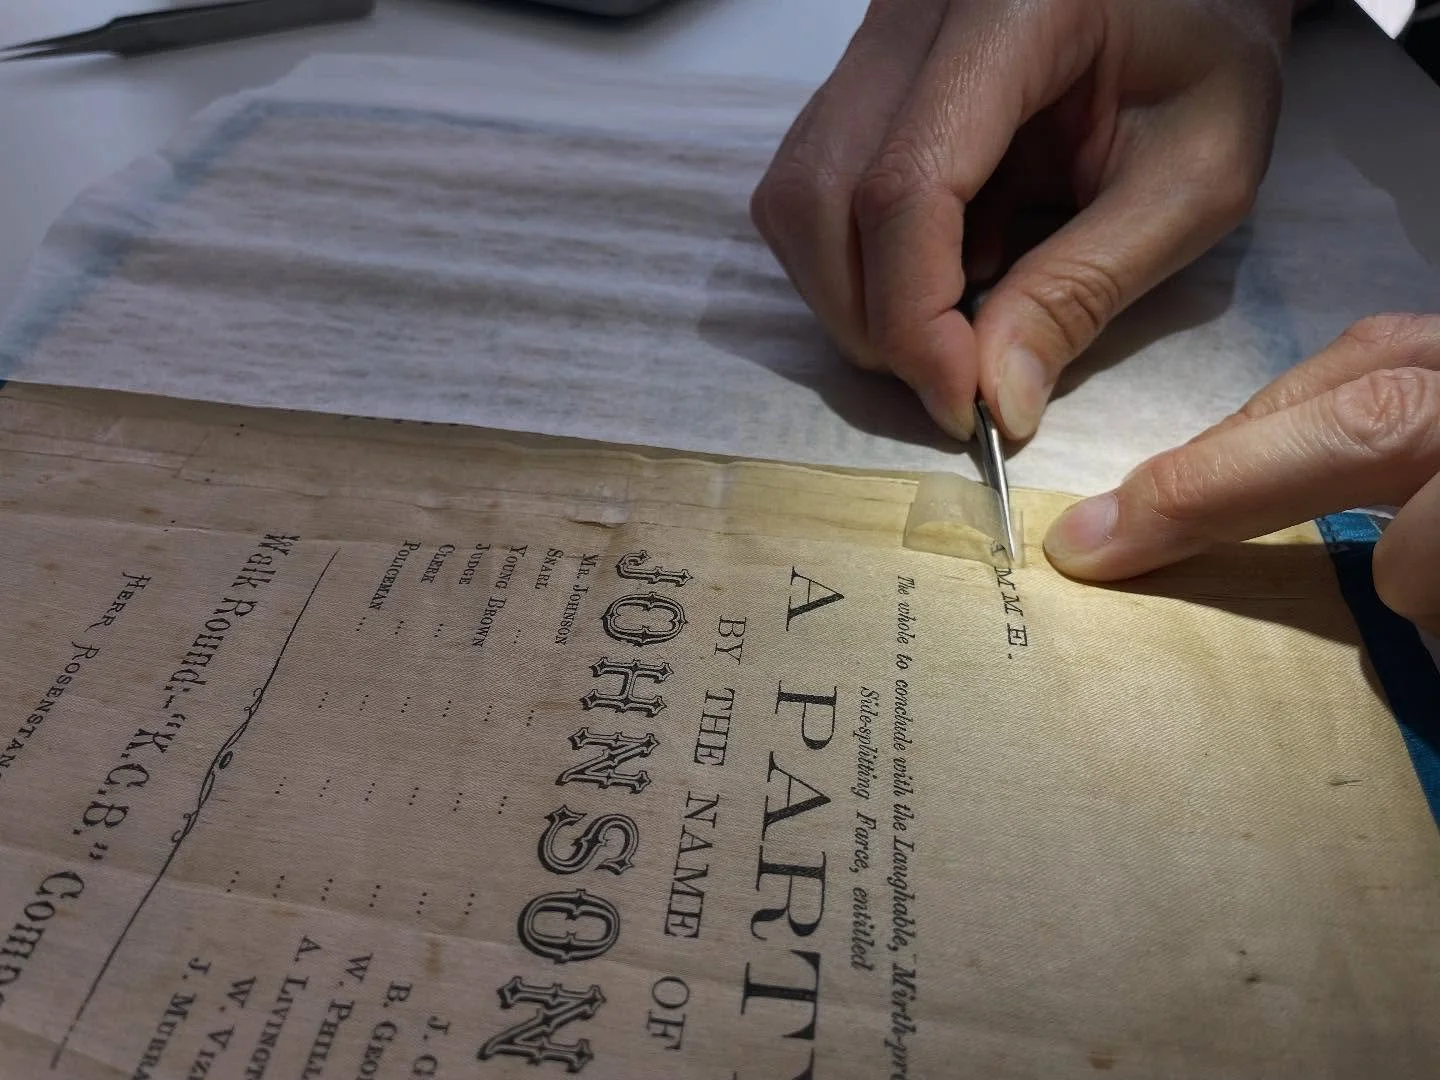 MME.
The whole to conclude with the Laughable, Mirth-pro
Side-splitting Farce, entitled
A PARTY
BY THE NAME OF
JOHNSON
MR. JOHNSON ... ... ... J. G
SNARL ... ... ... ... B. GEO
YOUNG BROWN ... ... ... W. PHILL
JUDGE ... ... ... ... A. LIVINGT
CLERK ... ... ... ... W. VIZ
POLICEMAN ... ... ... ... J. MURRA
Walk Round:-"K.C.B." Comp
HERR ROSENSTAN